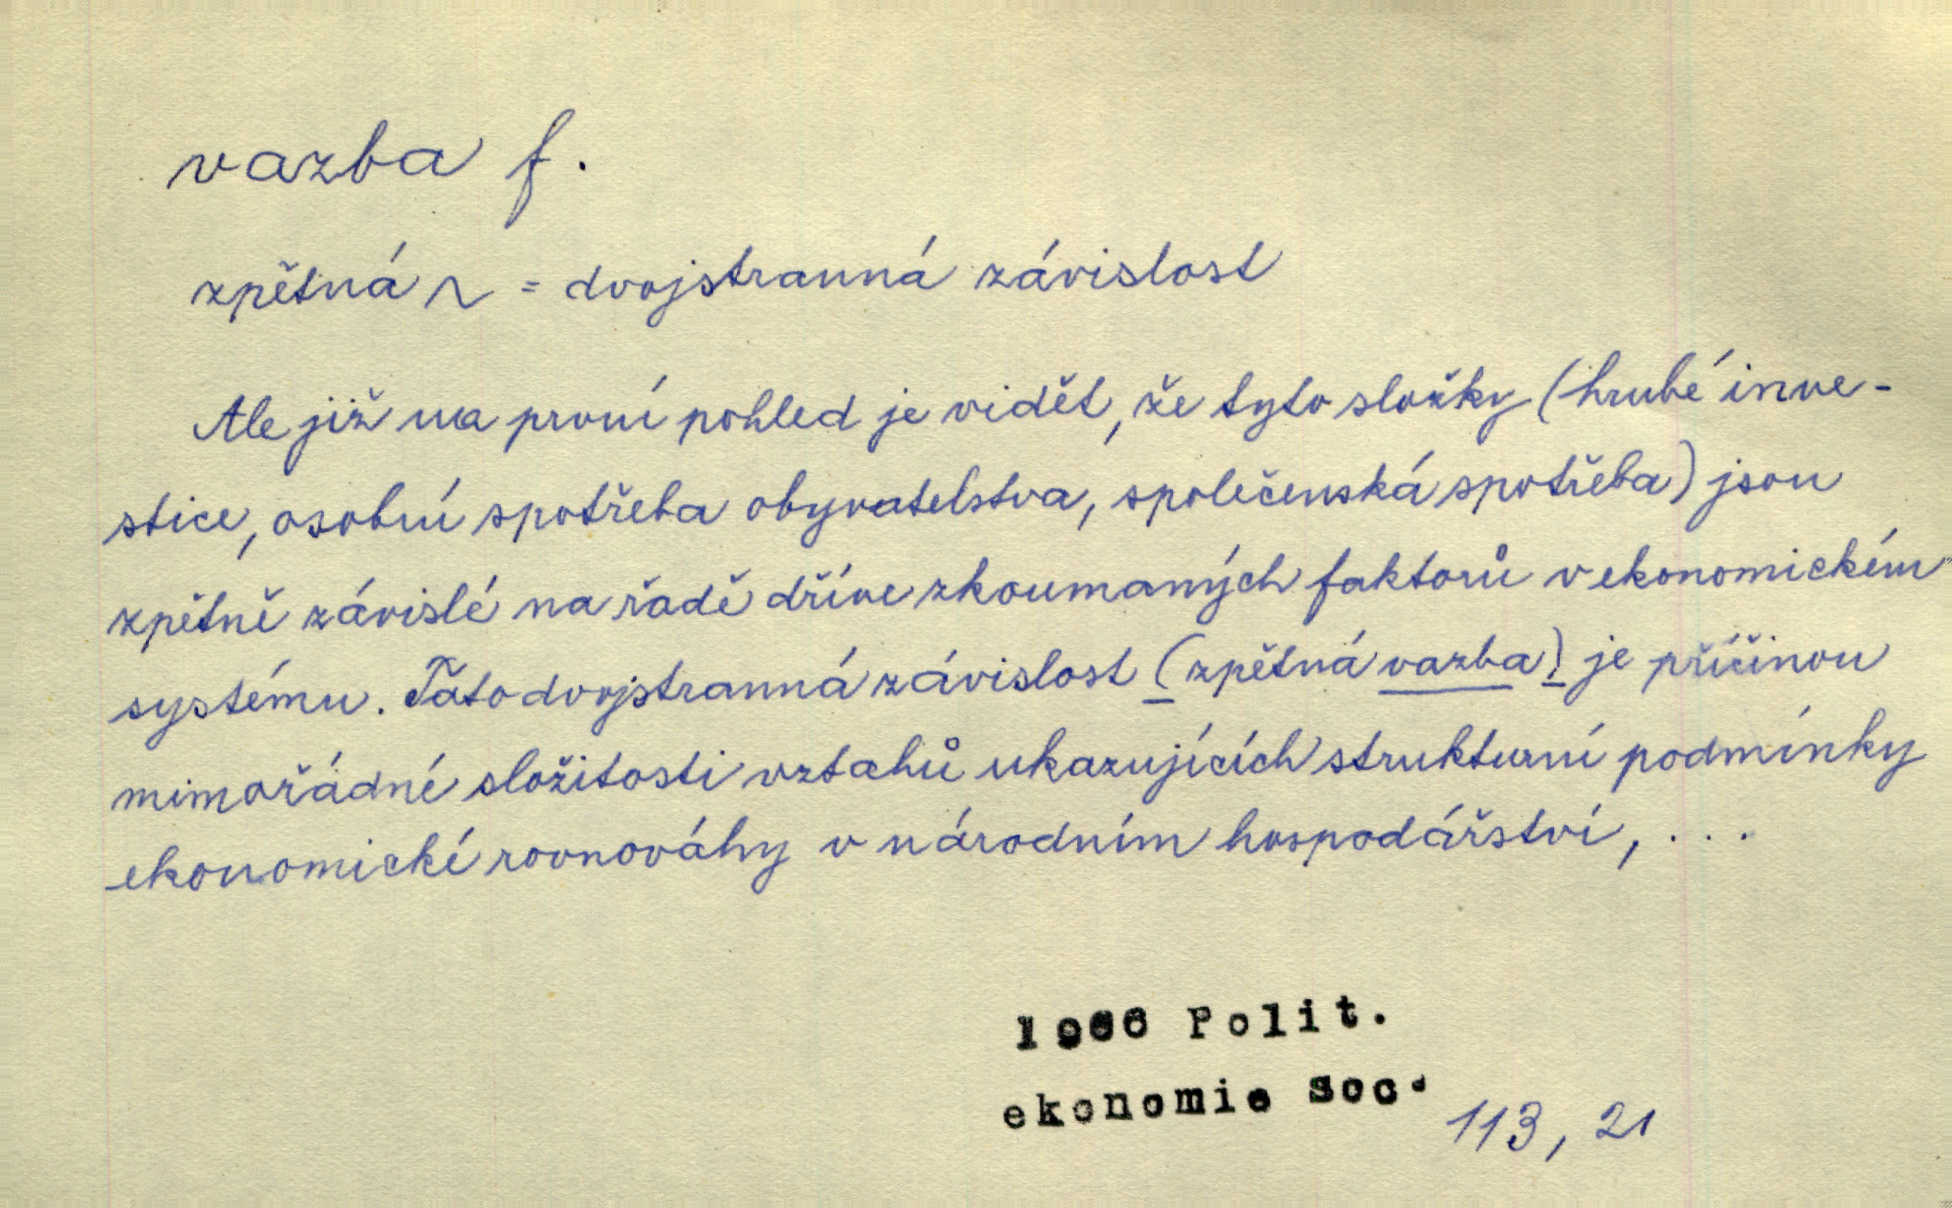 vazba f.
zpětná ~ = dvojstranná závislost
Ale již na první pohled je vidět, že tyto složky (hrubé inve-
stice, osobní spotřeba obyvatelstva, společenská spotřeba) jsou
zpětně závislé na řadě dříve zkoumaných faktorů v ekonomickém
systému. Tato dvojstranná závislost (zpětná vazba) je příčinou
mimořádné složitosti vztahů ukazujících strukturní podmínky
ekonomické rovnováhy v národním hospodářství, ...
1966 Polit.
ekonomie soc.
113, 21